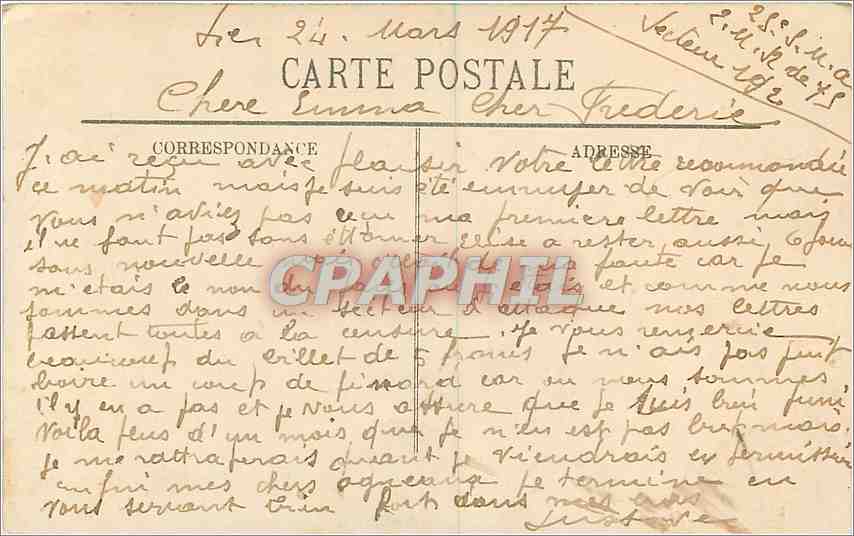 24. Mars 1917
25e S. M. A
2. M. R de 75
Secteur 192
CARTE POSTALE
Chere Emma Cher Frederic
CORRESPONDANCE
ADRESSE
J'ai reçu avec plaisir votre lettre recommandée
ce matin mais je suis été ennuyer de voir que
vous n'aviez pas reçu ma premiere lettre mais
il ne faut pas sans éttonner Elise a rester aussi 6 jours
sans nouvelle faute car je
m'etais le non du et comme nous
sommes dans un secteur d'attaque nos lettres
passent toutes a la censure. Je vous remercie
beaucoup du billet de 5 francs je n'ais pas put
boire un coup de pinard car ou nous sommes
il y en a pas et je vous assure que je suis bien puni
Voila plus d'un mois que je n'en est pas bu mais
je me rattraperais quant je viendrais en permission
enfin mes chers agneaux je termine en
vous serrant bien fort dans mes bras
Gustave
CPAPHIL